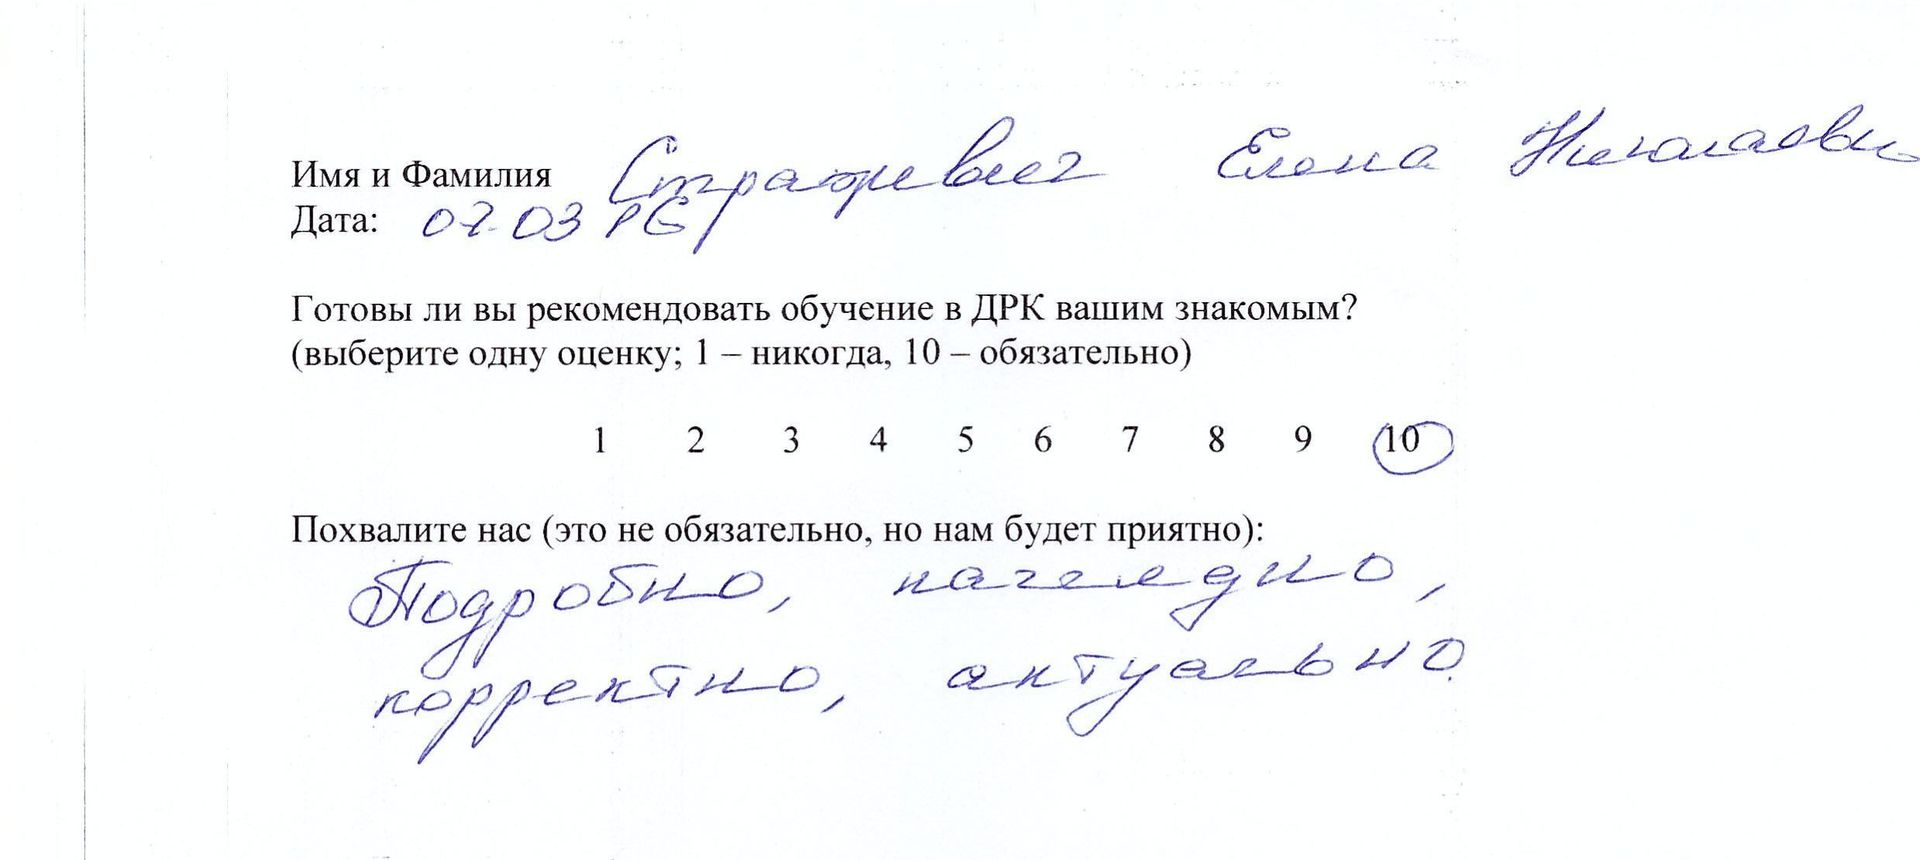 Имя и Фамилия Стражевич Елена Николаевн
Дата: 07.03 16
Готовы ли вы рекомендовать обучение в ДРК вашим знакомым?
(выберите одну оценку; 1 – никогда, 10 – обязательно)
1 2 3 4 5 6 7 8 9 10
Похвалите нас (это не обязательно, но нам будет приятно):
Подробно, наглядно,
корректно, актуально.